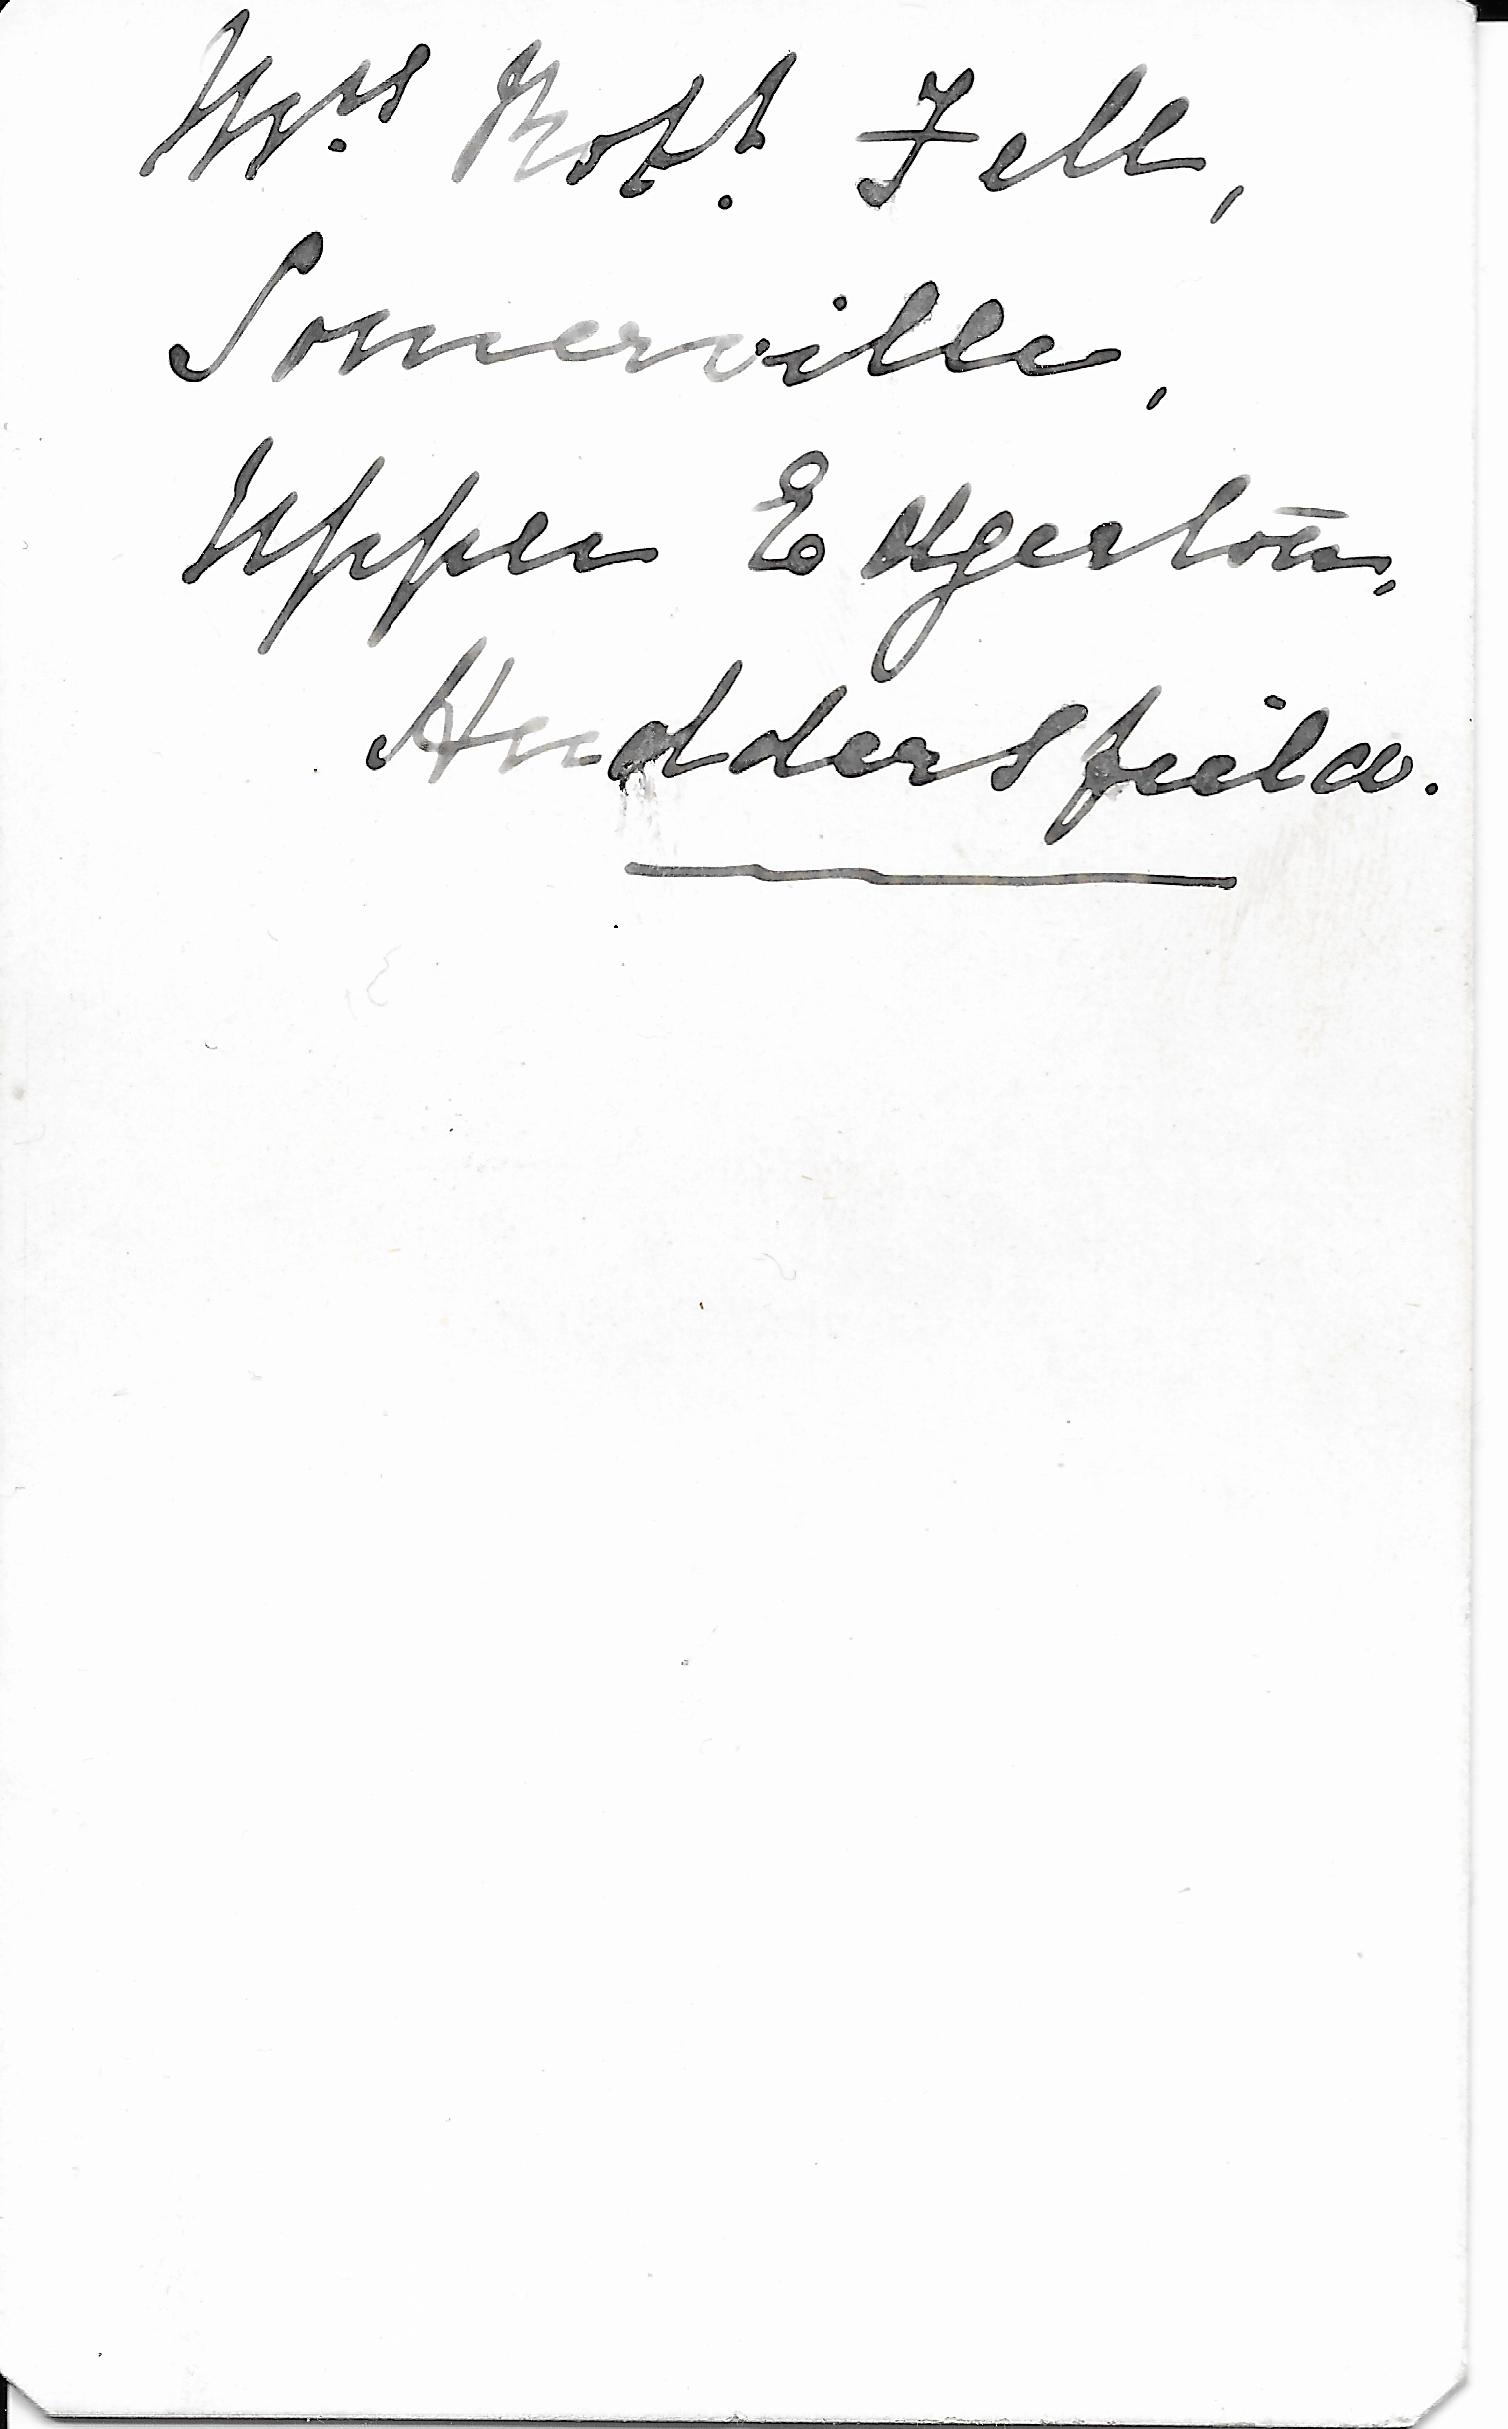 Mrs. Robt. Fell,
Somerville,
Upper Edgerton,
Huddersfield.